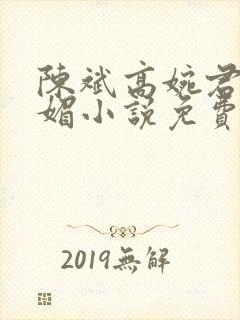 陳斌高婉君
媚小說免費
2019無解